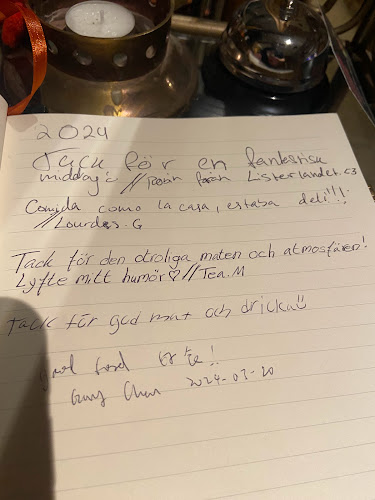 2024
Tack för en fantastisk
middag! // från Listerlandet <3
Comida como la casa, estaba deli!!!
// Lourdes. G
Tack för den otroliga maten och atmosfären!
Lyfte mitt humör♡ // Tea. M
Tack för god mat och dricka
good food
2024-07-20